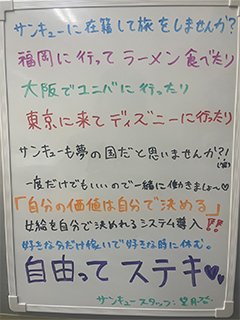 サンキューに在籍して旅をしませんか?
福岡に行ってラーメン食べたり
大阪でユニバに行ったり
東京に来てディズニーに行ったり
サンキューも夢の国だと思いませんか?!
(笑)
一度だけでもいいので一緒に働きましょ〜♡
「自分の価値は自分で決める」
女給を自分で決めれるシステム導入!!
好きな分だけ稼いで好きな時に休む。
自由ってステキ♥♥
サンキュースタッフ:望月